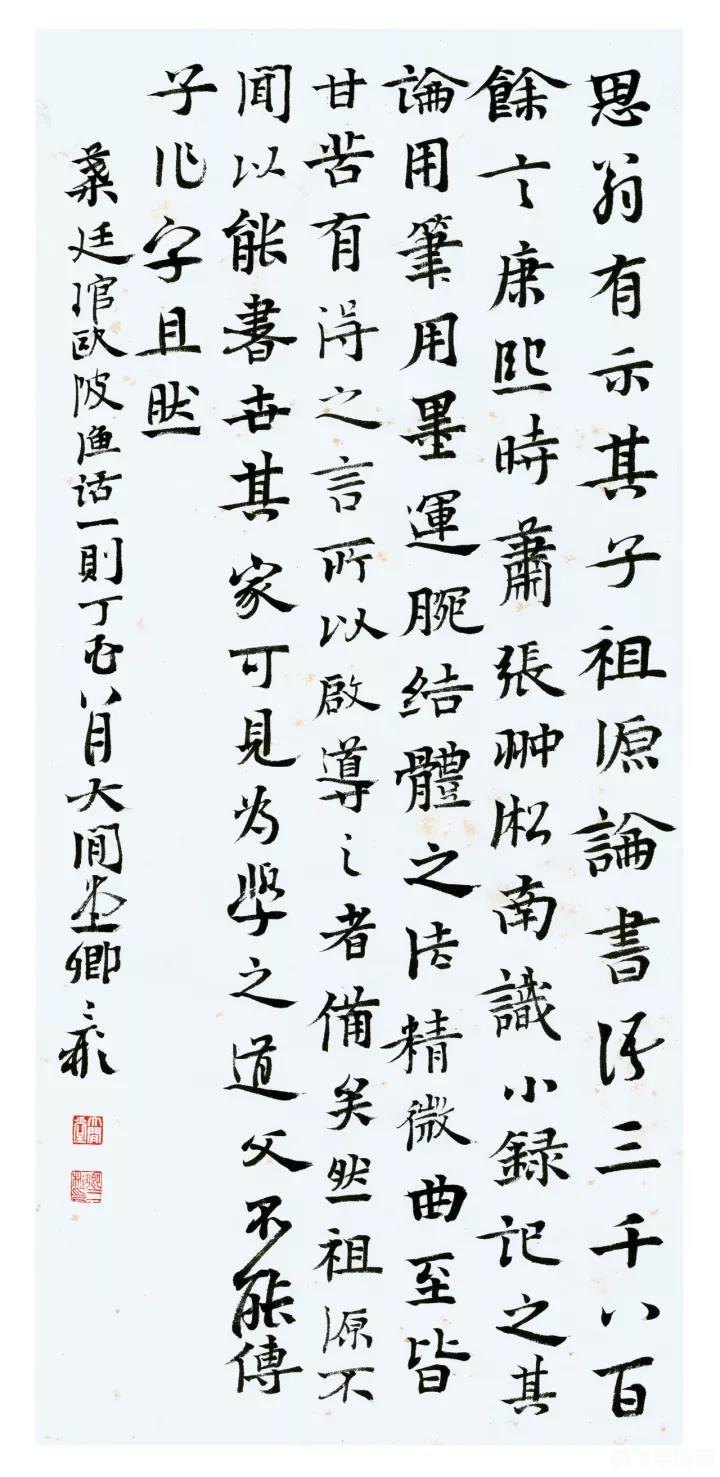 思翁有示其子祖源論書語三千八百
餘言康熙時蕭張翀淞南識小録記之其
論用筆用墨運腕结體之法精微曲至皆
甘苦有得之言所以啟導之者備矣然祖源不
聞以能書世其家可見为學之道父不能傳
子作字且然
葉廷琯鸥陂渔话一則丁酉八月大閒堂卿三彬